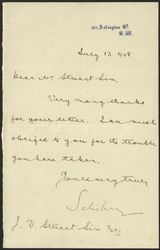 20, Arlington St.
S.W.
July 13. 1908
Dear Mr Stuart Sim,
Very many thanks
for your letter. I am much
obliged to you for the trouble
you have taken.
Yours very truly
Salisbury
J. D. Stuart Sim Esq